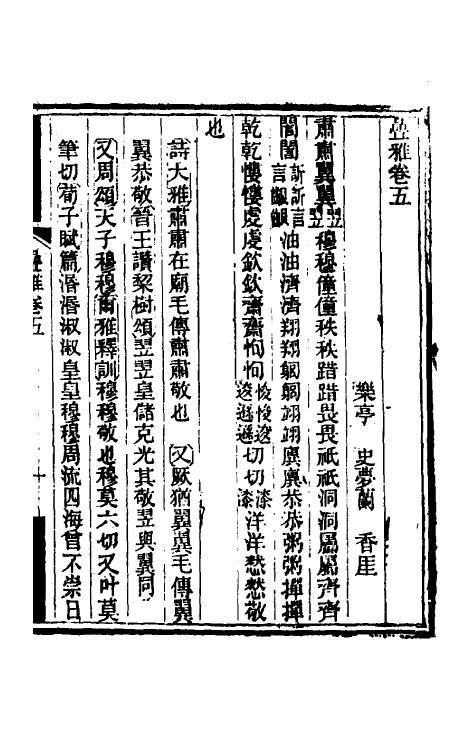 疊雅卷五
樂亭　史夢蘭　香厓
肅肅翼翼翌翌穆穆僮僮秩秩踖踖畏畏祗祗洞洞屬屬齊齊
誾誾訢訢言言齗齗油油濟濟翔翔躬躬翊翊廙廙恭恭粥粥撣撣
乾乾慺慺虔虔欽欽齋齋恂恂悛悛逡逡遜遜切切漆漆洋洋愁愁敬
也
詩大雅肅肅在廟毛傳肅肅敬也　又厥猶翼翼毛傳翼
翼恭敬晉王讚梨樹頌翌翌皇儲克光其敬翌與翼同
又周頌天子穆穆爾雅釋訓穆穆敬也穆莫六切又叶莫
筆切荀子賦篇湣湣淑淑皇皇穆穆周流四海曾不崇日
疊雅卷五
一